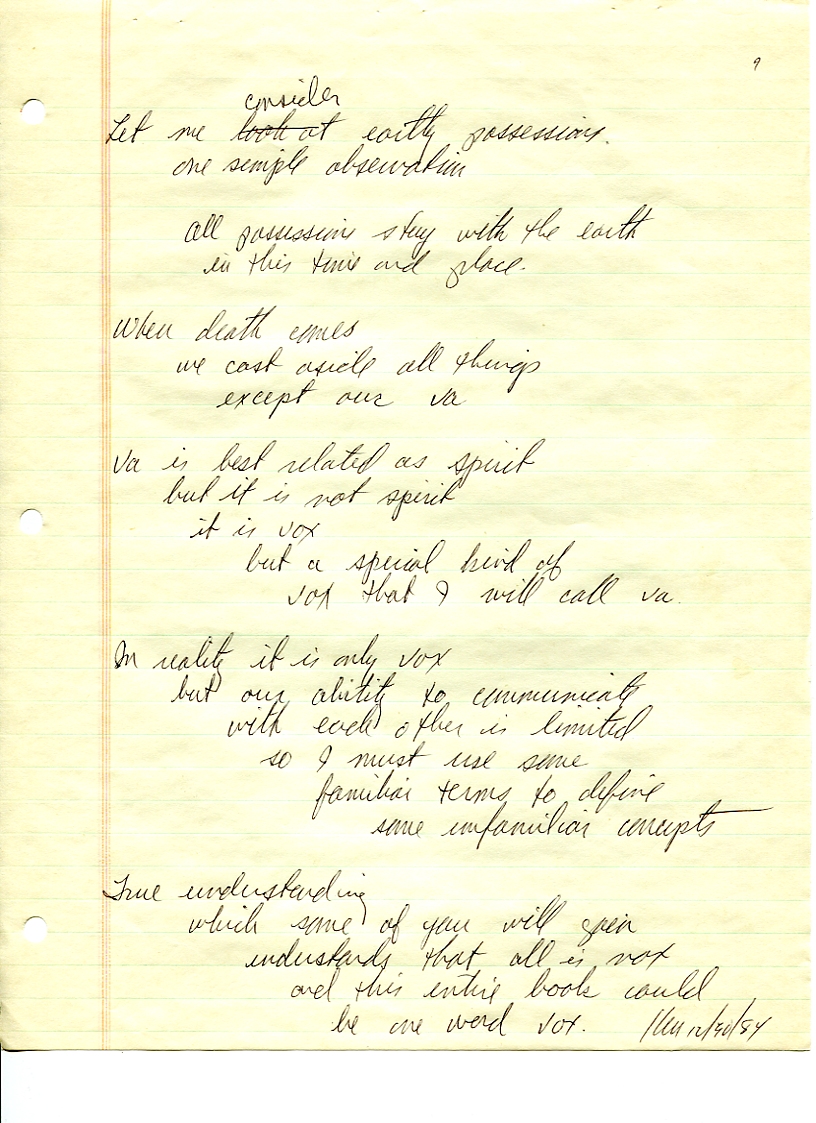 9
consider
Let me look at earthly possessions.
one simple observation
all possessions stay with the earth
in this time and place.
When death comes
we cast aside all things
except our va
Va is best related as spirit
but it is not spirit
it is vox
but a special kind of
vox that I will call va.
In reality it is only vox
but our ability to communicate
with each other is limited
so I must use some
familiar terms to define
some unfamiliar concepts
True understanding
which some of you will gain
understands that all is vox
and this entire book could
be one word vox.